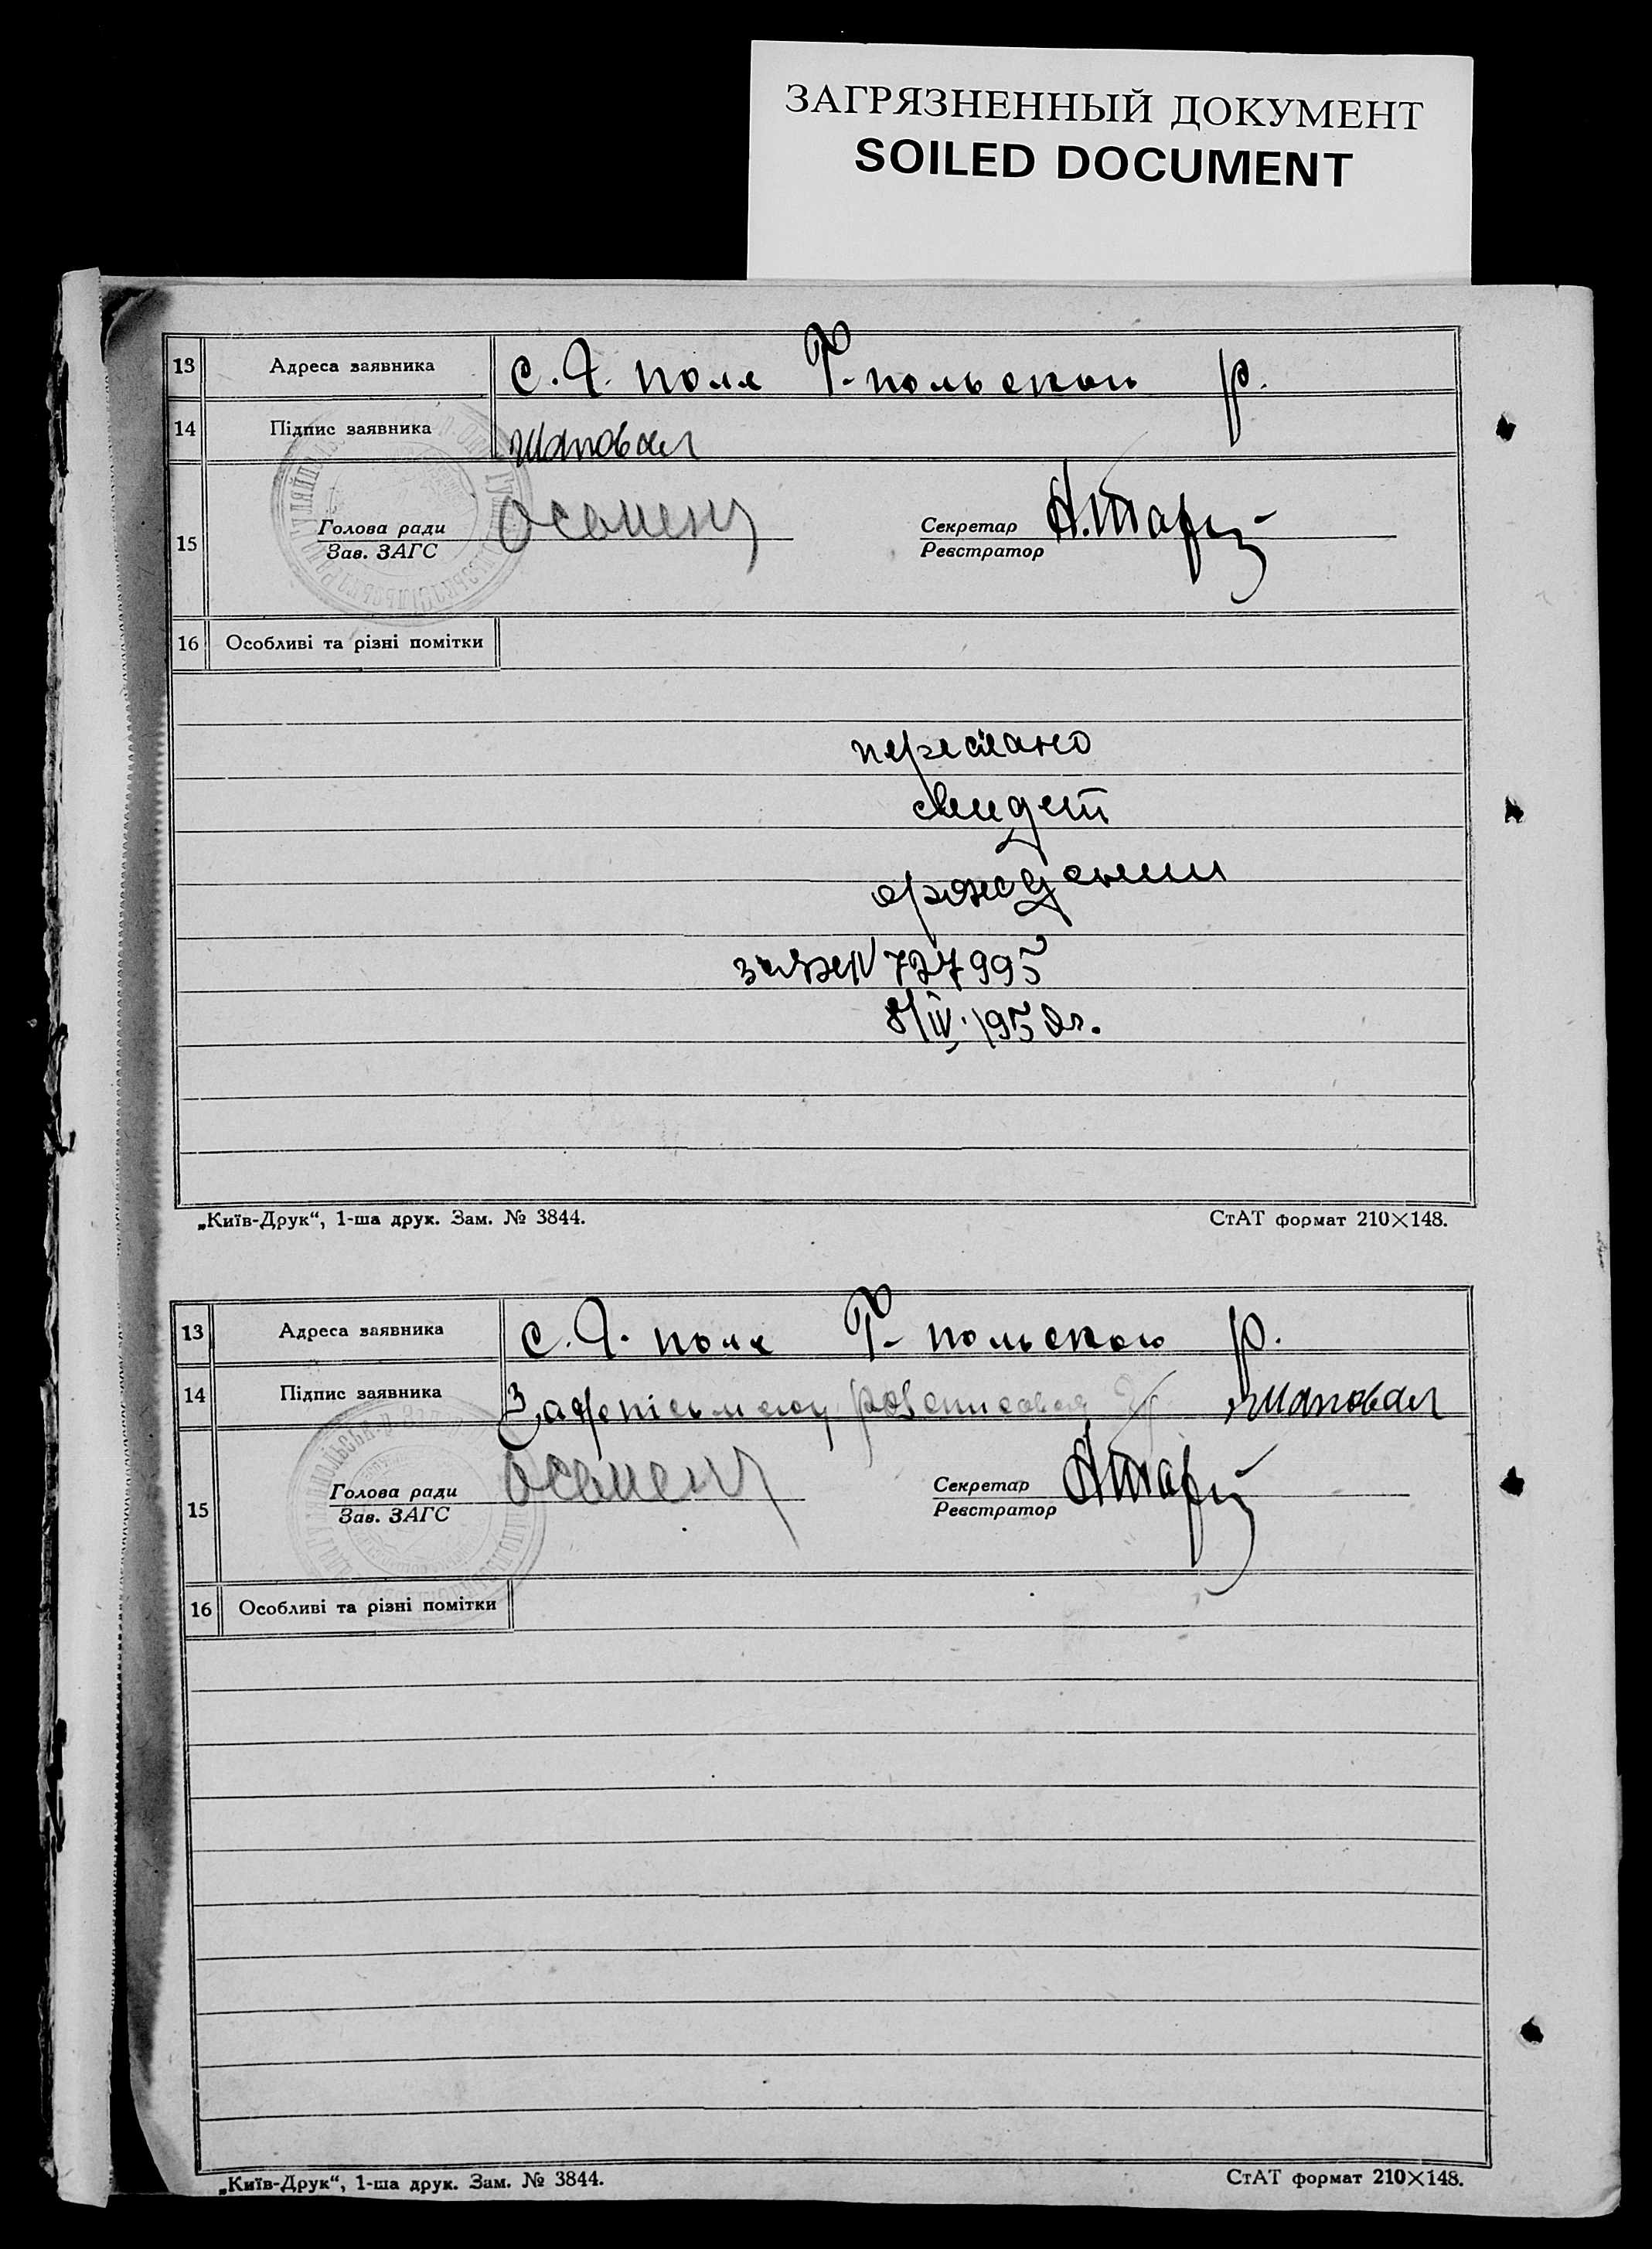 ЗАГРЯЗНЕННЫЙ ДОКУМЕНТ
SOILED DOCUMENT
13 Адреса заявника с. Я. поля Г-польского р.
14 Підпис заявника Шаповал
15 Голова ради
Зав. ЗАГС
Секретар
Реєстратор
16 Особливі та різні помітки
переслано
свидет
о рождении
за № 727995
8/IV. 1950г.
„Київ-Друк“, 1-ша друк. Зам. № 3844. СтАТ формат 210×148.
13 Адреса заявника с. Я. поля Г-польского р.
14 Підпис заявника Шаповал
15 Голова ради
Зав. ЗАГС
Секретар
Реєстратор
16 Особливі та різні помітки
„Київ-Друк“, 1-ша друк. Зам. № 3844. СтАТ формат 210×148.